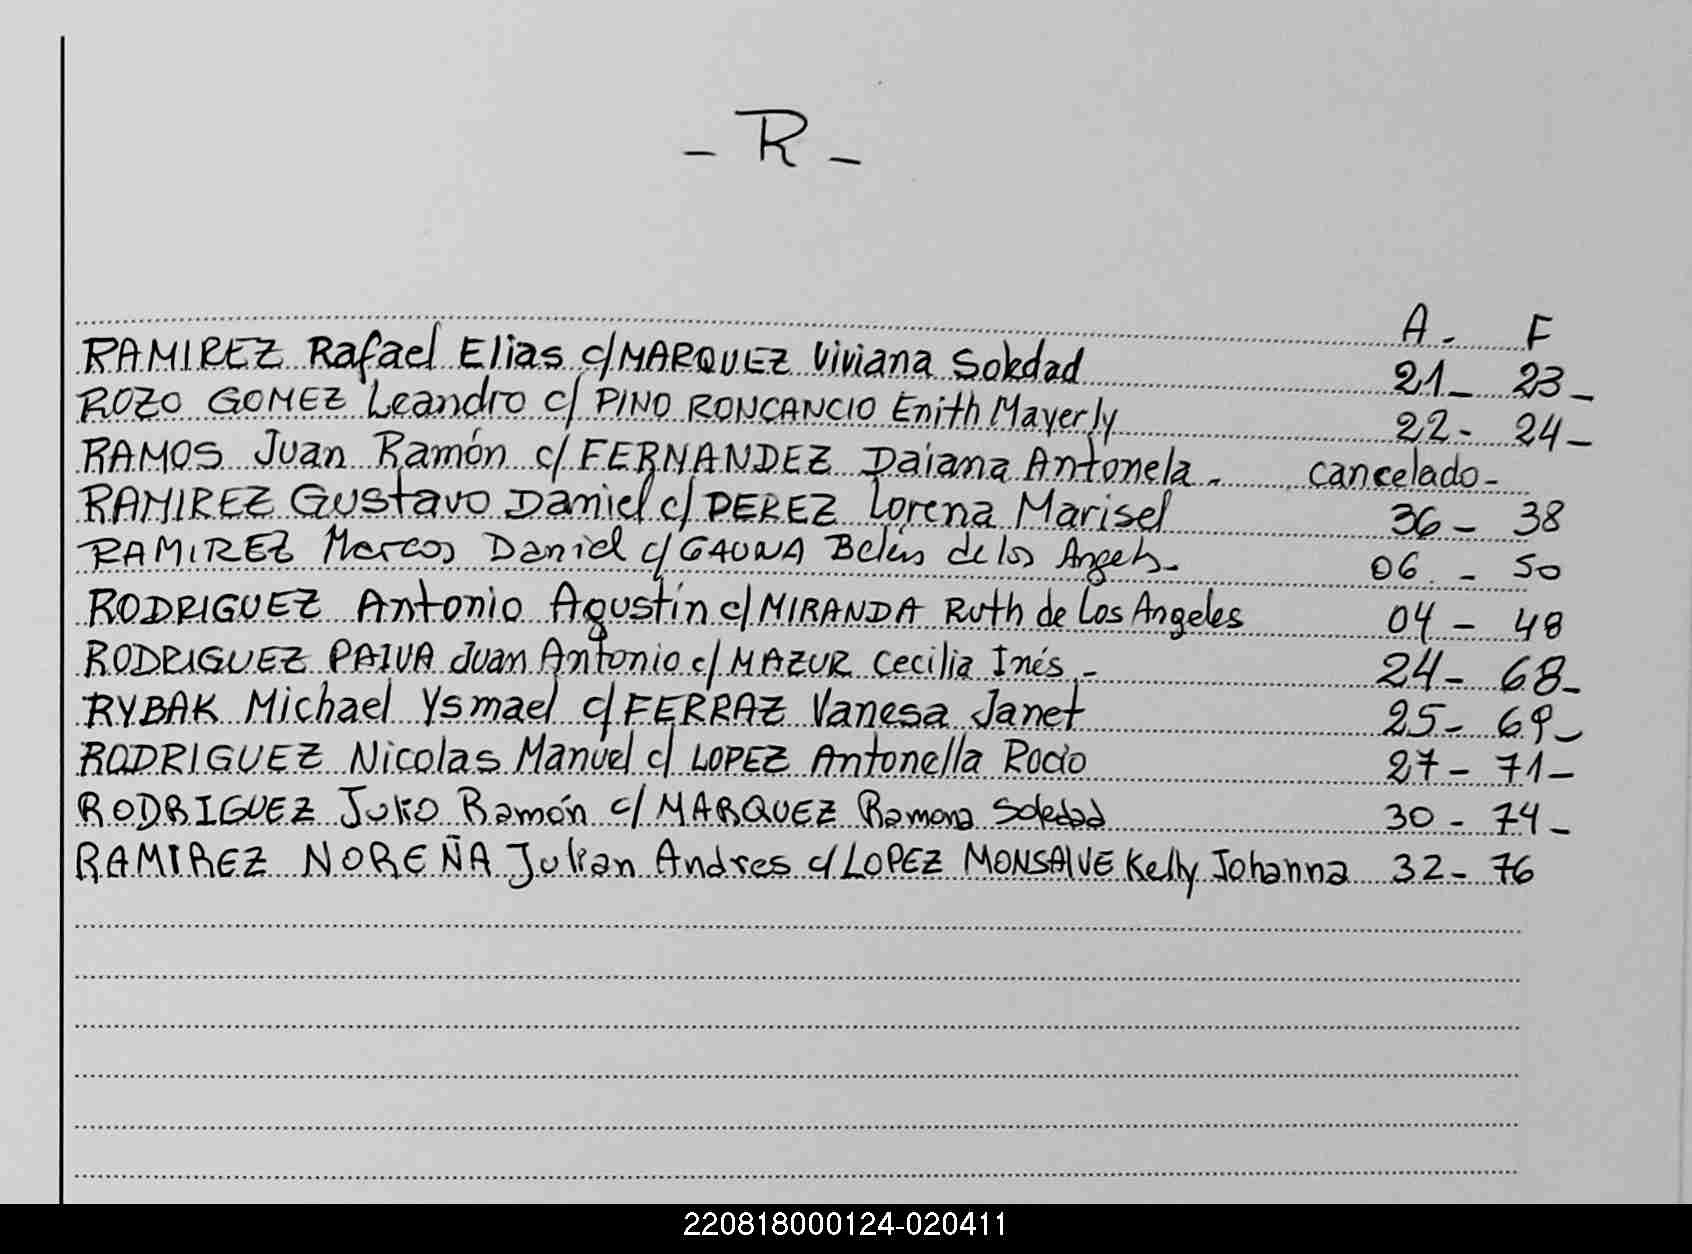 - R -
A. F
RAMIREZ Rafael Elias c/MARQUEZ Viviana Soledad 21- 23-
ROZO GOMEZ Leandro c/ PINO RONCANCIO Enith Mayerly 22- 24-
RAMOS Juan Ramón c/ FERNANDEZ Daiana Antonela. cancelado-
RAMIREZ Gustavo Daniel c/ PEREZ Lorena Marisel 36- 38
RAMIREZ Marcos Daniel c/ GAUNA Belén de los Angeles- 06 - 50
RODRIGUEZ Antonio Agustín c/ MIRANDA Ruth de Los Angeles 04 - 48
RODRIGUEZ PAIVA Juan Antonio c/ MAZUR Cecilia Inés.- 24- 68-
RYBAK Michael Ysmael c/ FERRAZ Vanesa Janet 25- 69-
RODRIGUEZ Nicolas Manuel c/ LOPEZ Antonella Rocio 27- 71-
RODRIGUEZ Julio Ramón c/ MARQUEZ Ramona Soledad 30- 74-
RAMIREZ NOREÑA Julian Andres c/ LOPEZ MONSALVE Kelly Johanna 32- 76
220818000124-020411